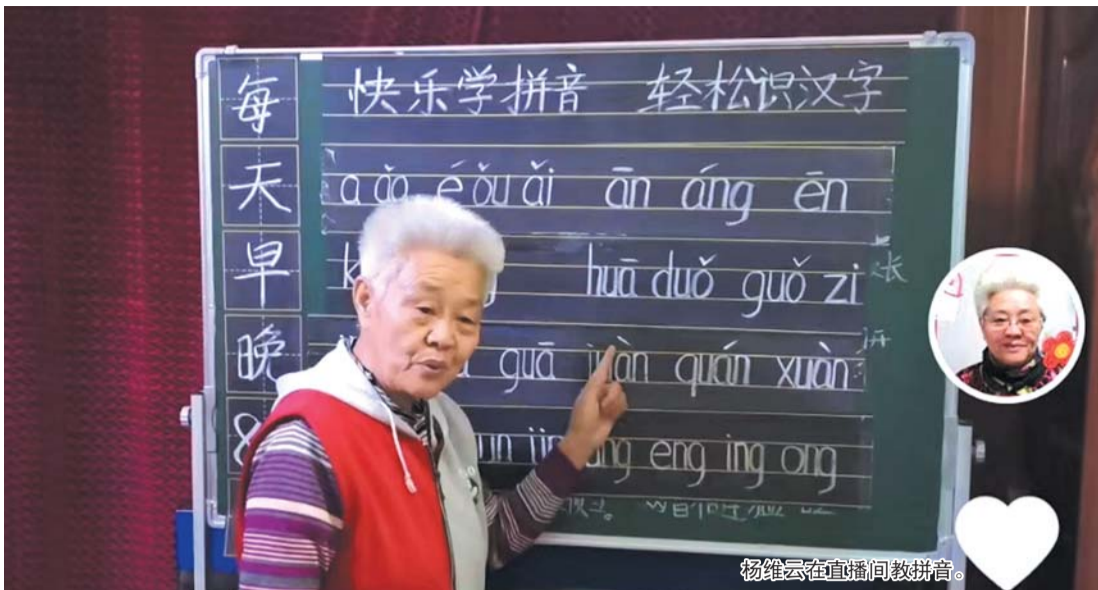 每天早晚8
快乐学拼音 轻松识汉字
a ǎo é ǒu ǎi ān áng ēn
huā duǒ guǒ zi
guā juàn quán xuàn
ang eng ing ong
杨维云在直播间教拼音。